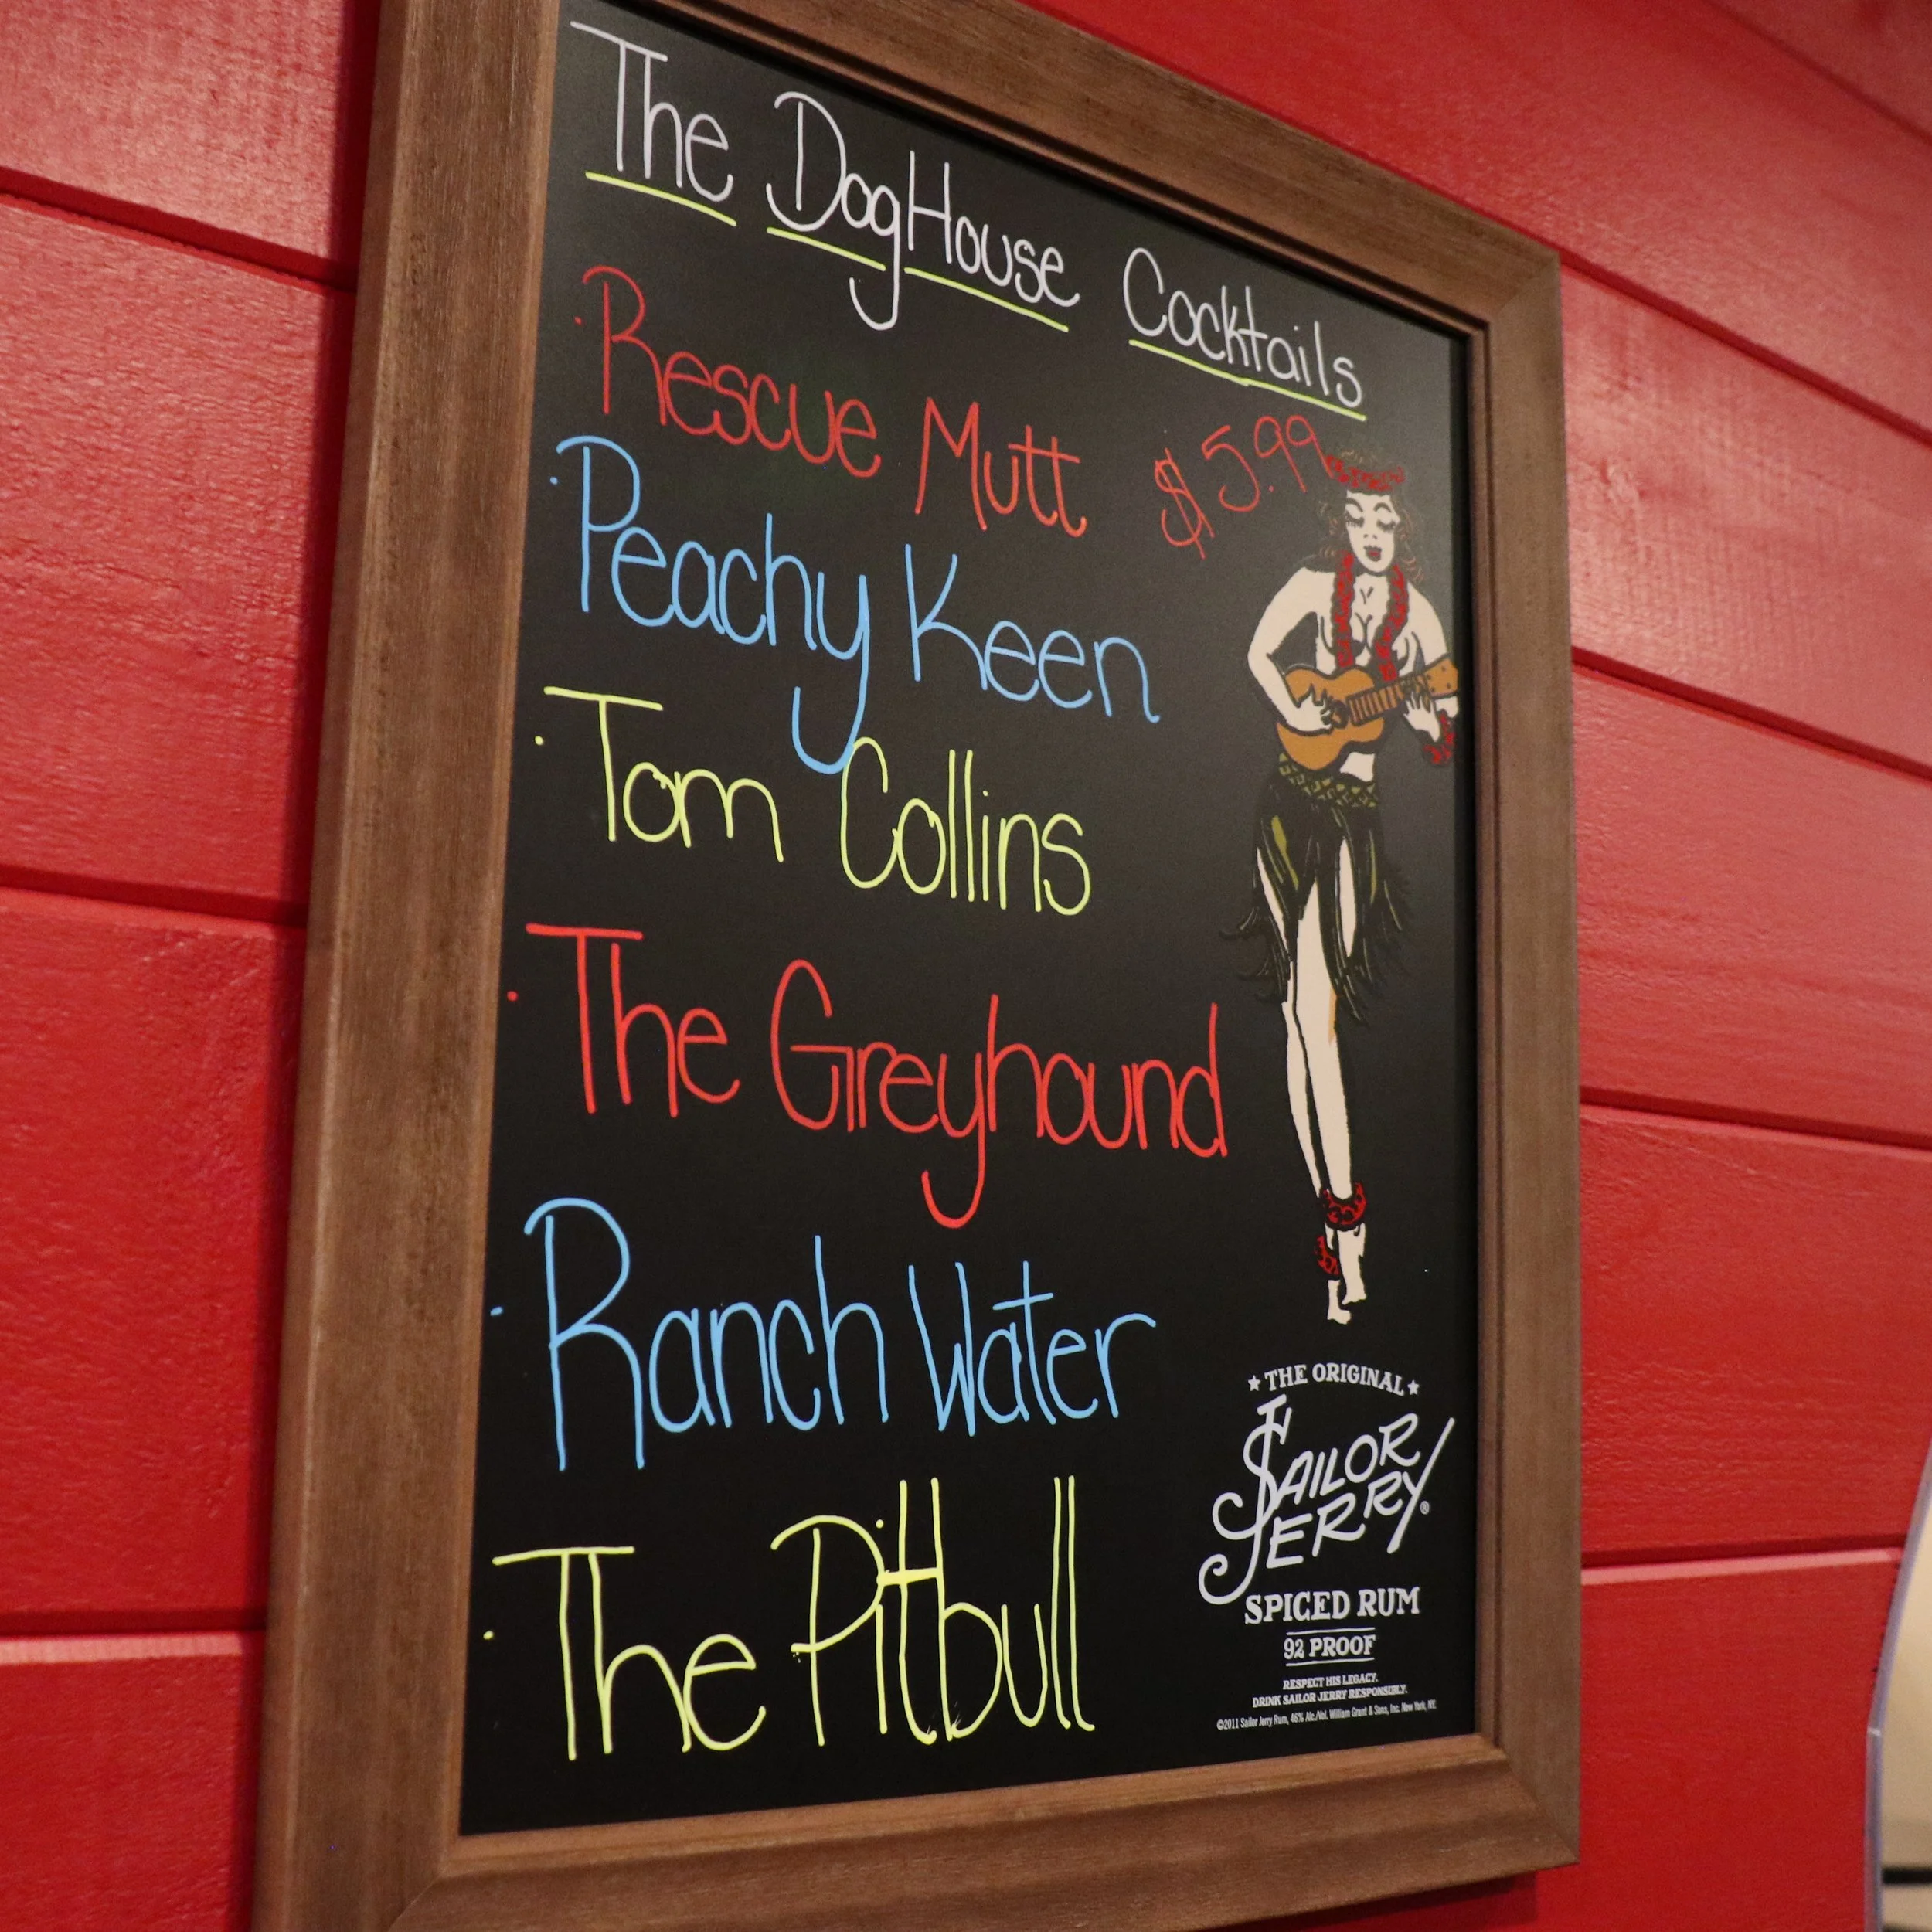 The DogHouse Cocktails
· Rescue Mutt $5.99
· Peachy Keen
· Tom Collins
· The Greyhound
· Ranch Water
· The Pitbull
★ THE ORIGINAL ★
SAILOR
JERRY®
SPICED RUM
92 PROOF
RESPECT HIS LEGACY.
DRINK SAILOR JERRY RESPONSIBLY.
©2011 Sailor Jerry Rum, 46% Alc./Vol. William Grant & Sons, Inc. New York, NY.